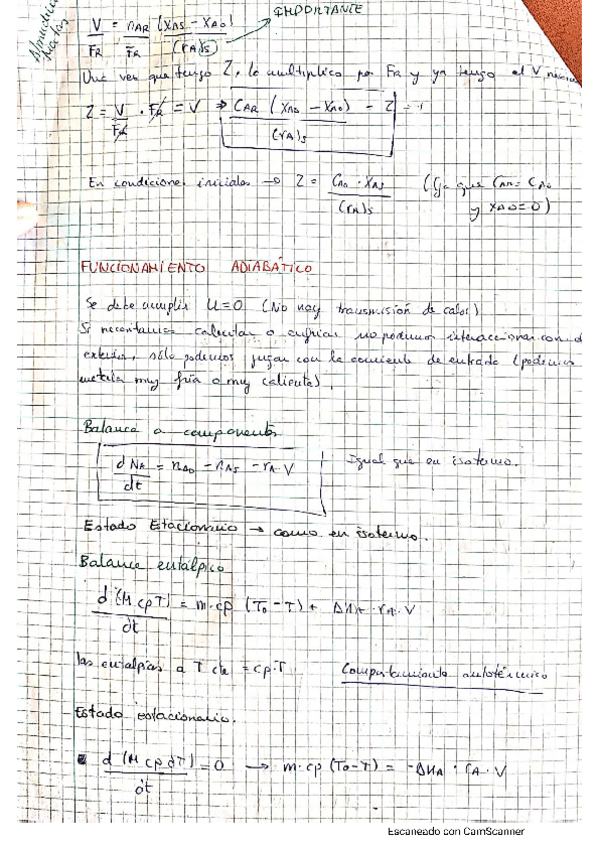 IMPORTANTE
V/FR = nAR/FR (XAS - XA0)/(rA)s
Una vez que tengo Z, lo multiplico por FR y ya tengo el V
Z = V/FR · FR = V ⇒ CAR (XAS - XA0)/(rA)s - Z
En condiciones iniciales → Z = CA0 · XAS/(rA)s (Ya que CAR = CA0
y XA0 = 0)
FUNCIONAMIENTO ADIABÁTICO
Se debe cumplir U=0 (No hay transmisión de calor)
Si necesitamos calentar o enfriar no podemos interaccionar con el
exterior, sólo podemos jugar con la corriente de entrada (podemos
meterla muy fría o muy caliente).
Balance a componentes
dNA/dt = nA0 - nAS - rA·V Igual que en isotermo.
Estado Estacionario → como en isotermo.
Balance entálpico
d(M cp T)/dt = m·cp (T0-T) + ΔHA · rA · V
las entalpías a T cte = cp·T. Comportamiento autotérmico
Estado estacionario.
d(M cp dT)/dt = 0 → m·cp (T0-T) = -ΔHA · rA · V
Escaneado con CamScanner